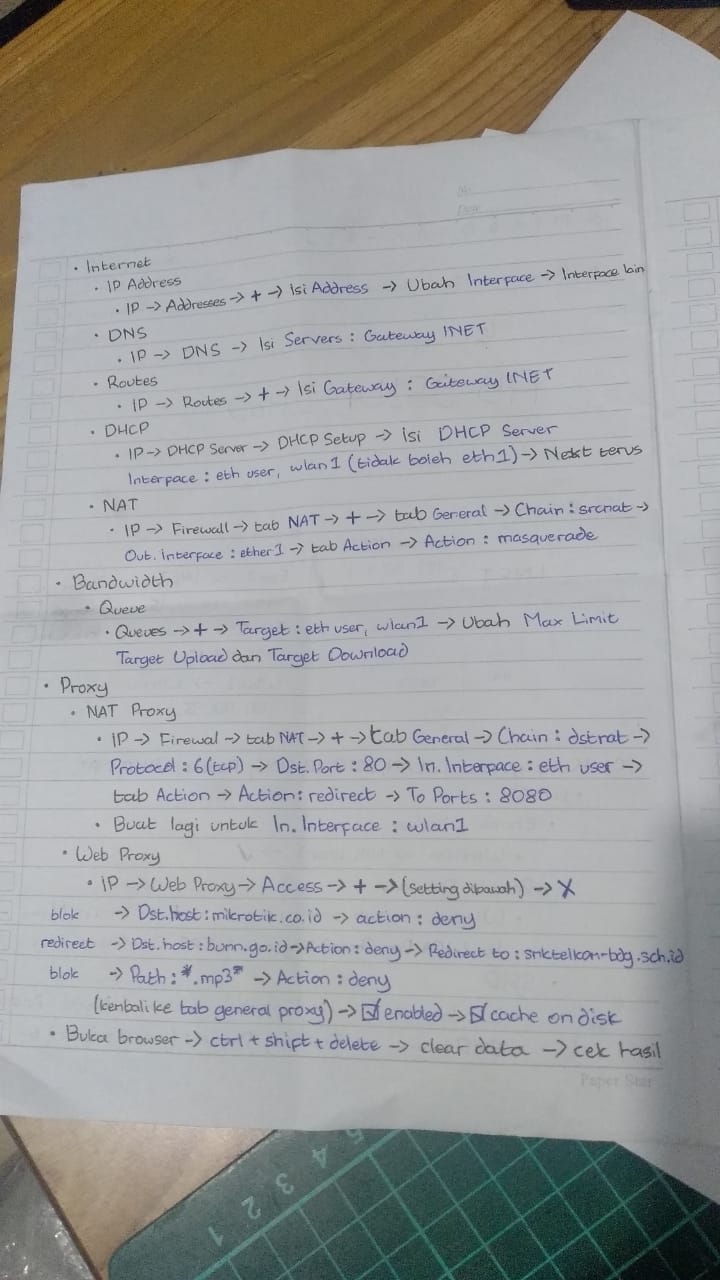 No.
Date
• Internet
• IP Address
• IP → Addresses → + → Isi Address → Ubah Interface → Interface lain
• DNS
• IP → DNS → Isi Servers : Gateway INET
• Routes
• IP → Routes → + → Isi Gateway : Gateway INET
• DHCP
• IP → DHCP Server → DHCP Setup → Isi DHCP Server
Interface : eth user, wlan1 (tidak boleh eth1) → Next terus
• NAT
• IP → Firewall → tab NAT → + → tab General → Chain : srcnat →
Out. interface : ether1 → tab Action → Action : masquerade
• Bandwidth
• Queue
• Queues → + → Target : eth user, wlan1 → Ubah Max Limit
Target Upload dan Target Download
• Proxy
• NAT Proxy
• IP → Firewal → tab NAT → + → tab General → Chain : dstnat →
Protocol : 6 (tcp) → Dst. Port : 80 → In. Interface : eth user →
tab Action → Action : redirect → To Ports : 8080
• Buat lagi untuk In. Interface : wlan1
• Web Proxy
• IP → Web Proxy → Access → + → (setting dibawah) → X
blok → Dst.host : mikrotik.co.id → action : deny
redirect → Dst.host : bumn.go.id → Action : deny → Redirect to : smktelkom-bdg.sch.id
blok → Path : *.mp3* → Action : deny
(kembali ke tab general proxy) → ☑ enabled → ☑ cache on disk
• Buka browser → ctrl + shift + delete → clear data → cek hasil
Paper Star